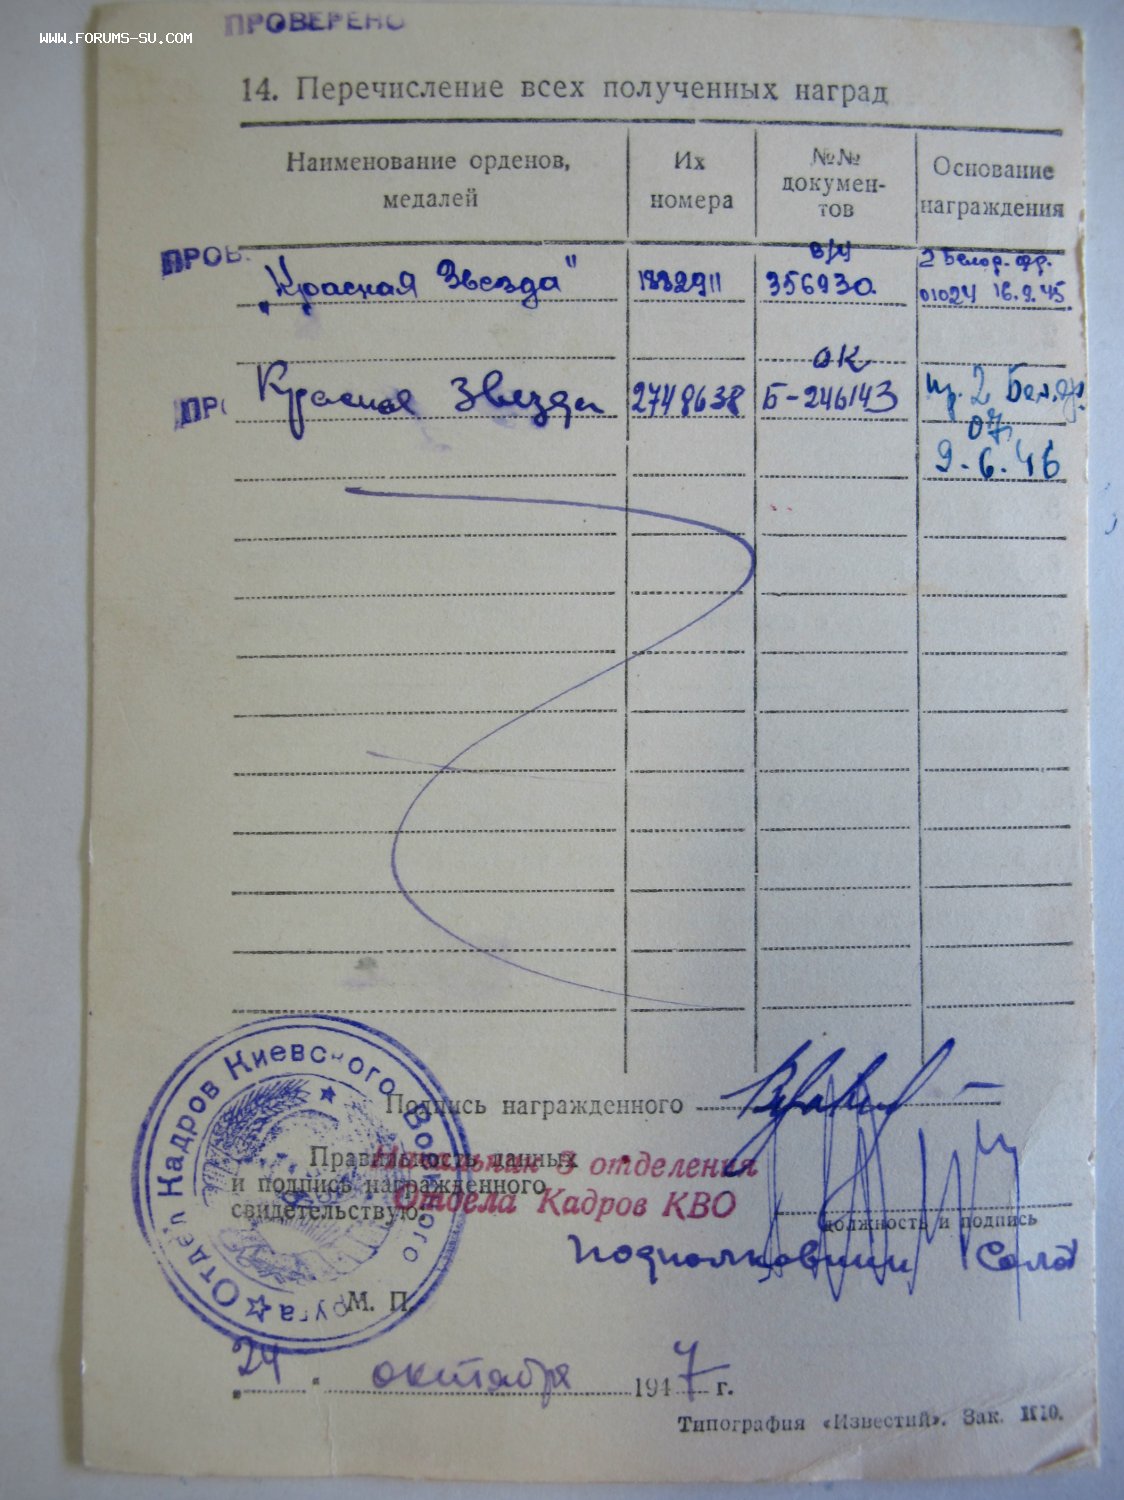 ПРОВЕРЕНО
www.forums-su.com
14. Перечисление всех полученных наград
Наименование орденов, медалей
Их номера
№№ докумен-тов
Основание награждения
ПРОВ.
„Красная Звезда"
в/у
356930
2 Белор. фр.
01024 16.9.45
ПРО
Красная Звезда
2748638
ОК
Б-246143
2 Бел. фр.
07
9.6.46
Подпись награжденного
Правильность данных
и подпись награжденного
свидетельствую
Начальник 3 отделения
Отдела Кадров КВО
должность и подпись
подполковник
Отдел Кадров Киевского Военного Округа
М. П.
24 октября 1947 г.
Типография «Известий». Зак.